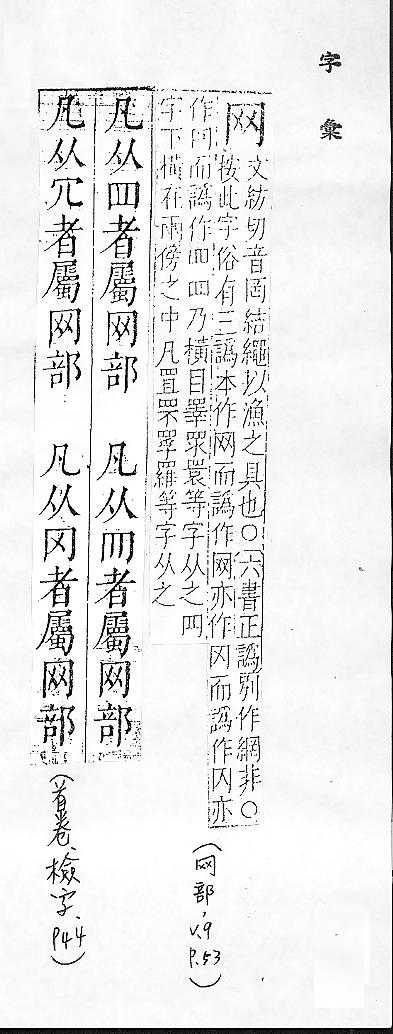 字彙
网
文紡切音罔結繩以漁之具也○六書正譌別作網非○
按此字俗有三譌本作网而譌作网亦作冈而譌作冈亦
作罓而譌作罒罒乃橫目睪眾瞏等字从之罒
字下橫在兩傍之中凡罝罘罩羅等字从之
(网部, V.9 P.53)
凡从罒者屬网部 凡从𦉫者屬网部
凡从㓁者屬网部 凡从冈者屬网部
(首卷、檢字、P44)